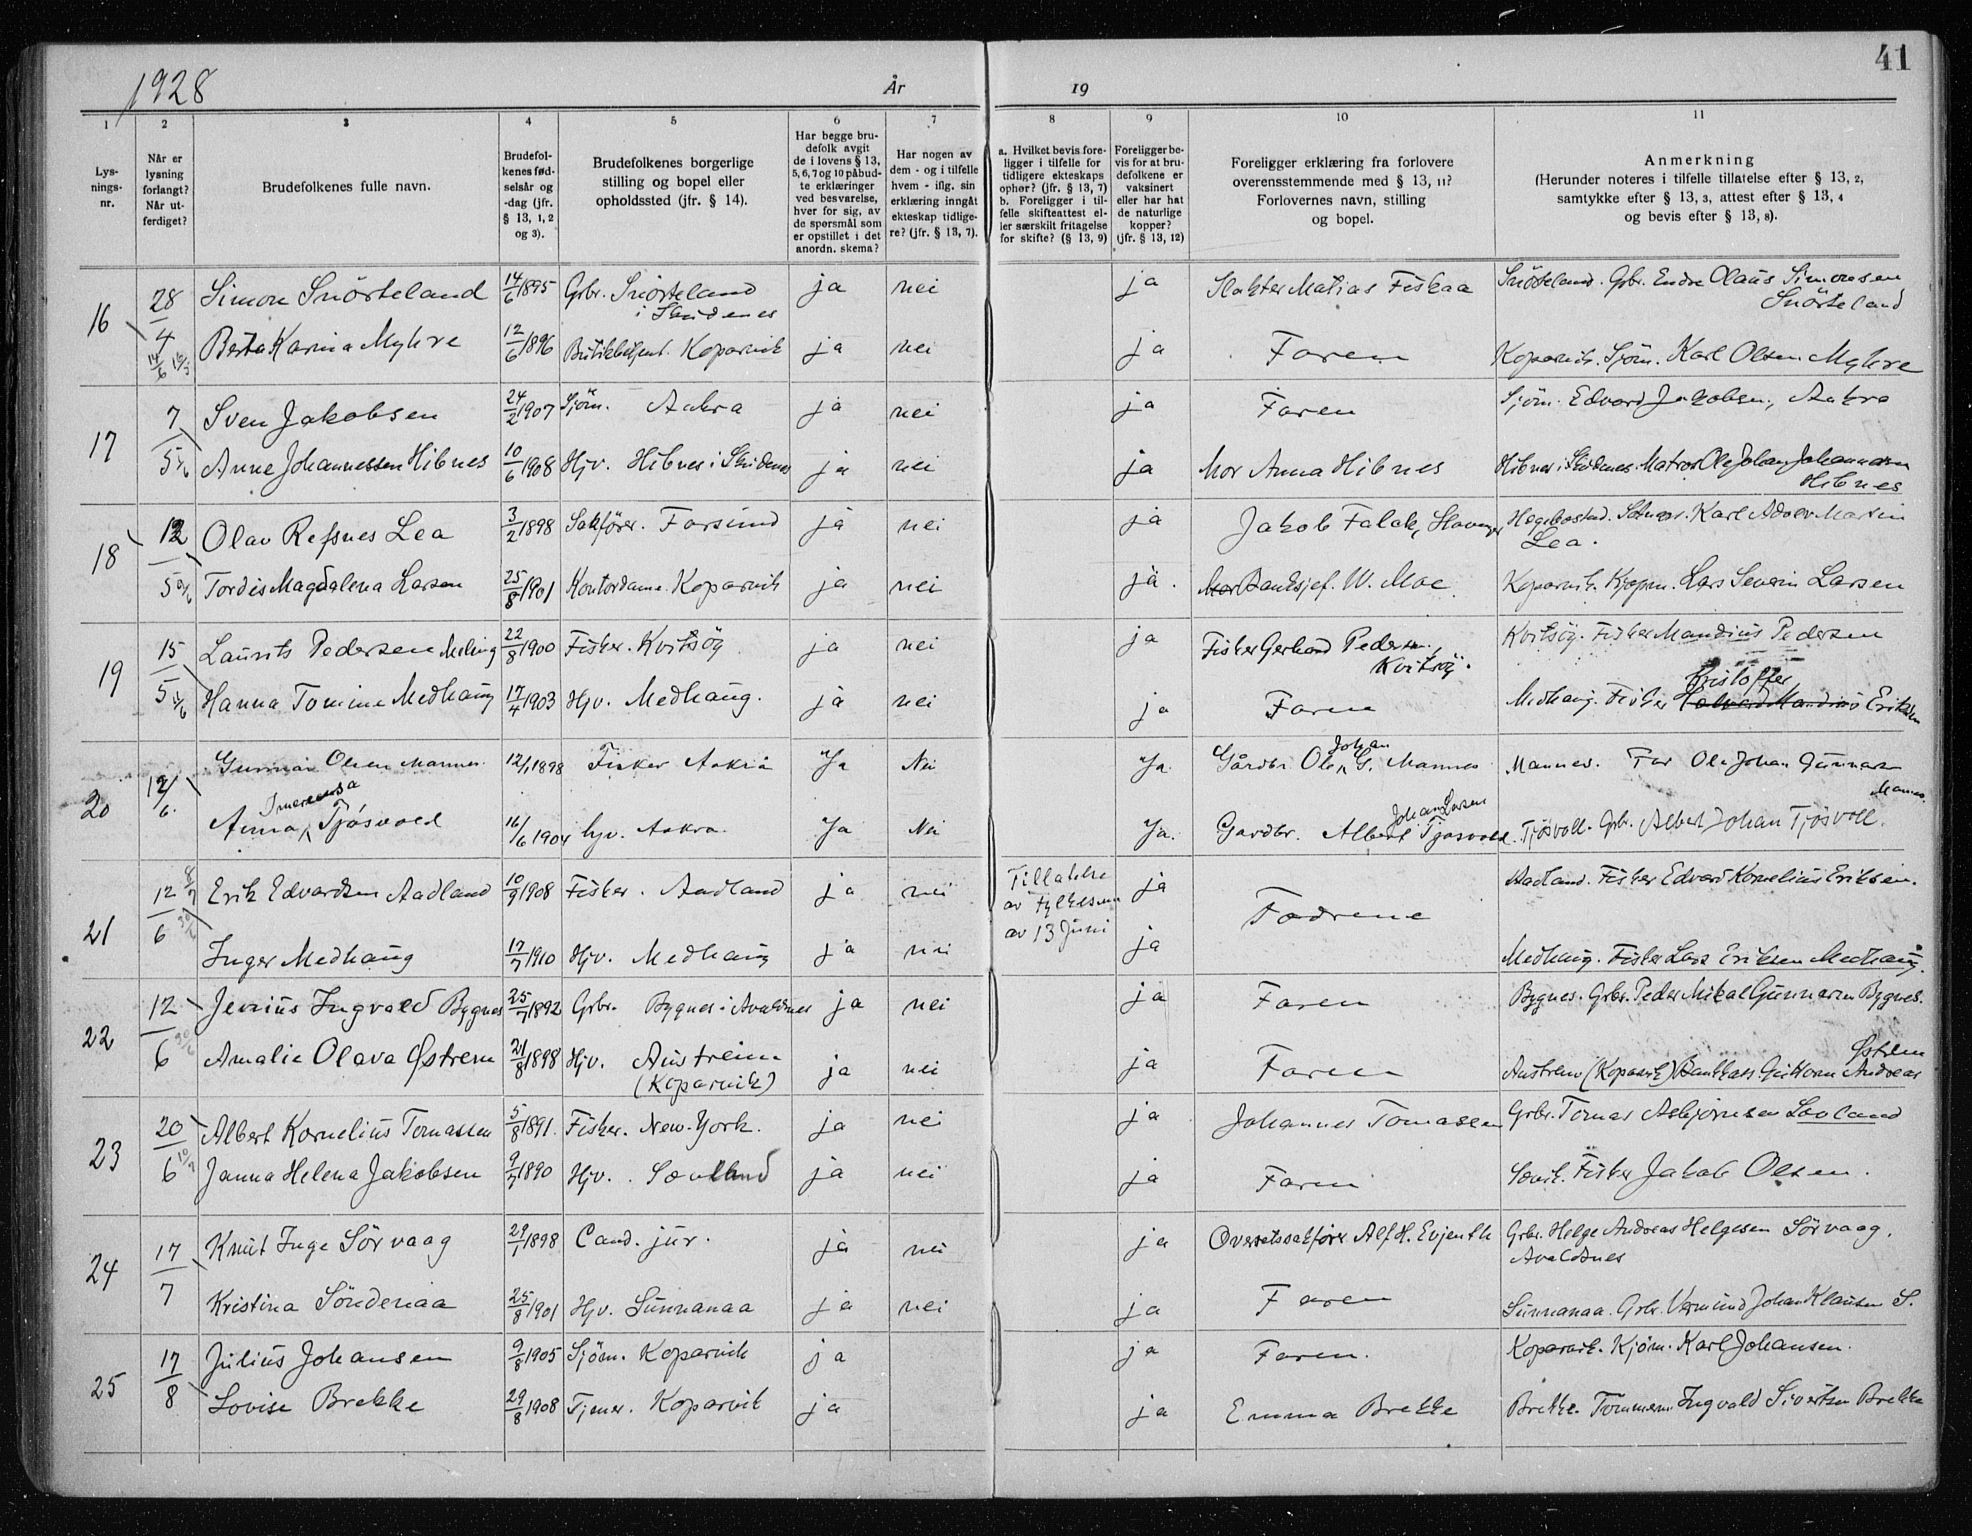 1928
År
19
41
1 2 3 4 5 6 7 8 9 10 11
Lys-
nings-
nr.
Når er
lysning
forlangt?
Når ut-
ferdiget?
Brudefolkenes fulle navn.
Brudefol-
kenes fød-
selsår og
-dag (jfr.
§ 13, 1, 2
og 3).
Brudefolkenes borgerlige
stilling og bopel eller
opholdssted (jfr. § 14).
Har begge bru-
defolk avgit
de i lovens § 13,
5, 6, 7 og 10 påbud-
te erklæringer
ved besvarelse,
hver for sig, av
de spørsmål som
er opstillet i det
anordn. skema?
Har nogen av
dem - og i tilfelle
hvem - iflg. sin
erklæring inngåt
ekteskap tidlige-
re? (jfr. § 13, 7).
a. Hvilket bevis fore-
ligger i tilfelle for
tidligere ekteskaps
ophør? (jfr. § 13, 7)
b. Foreligger i til-
felle skifteattest el-
ler særskilt fritagelse
for skifte? (§ 13, 9)
Foreligger be-
vis for at bru-
defolkene er
vaksinert
eller har hat
de naturlige
kopper?
(jfr. § 13, 12)
Foreligger erklæring fra forlovere
overensstemmende med § 13, 11?
Forlovernes navn, stilling
og bopel.
Anmerkning
(Herunder noteres i tilfelle tillatelse efter § 13, 2,
samtykke efter § 13, 3, attest efter § 13, 4
og bevis efter § 13, 8).
16 28/4 Simon Snörteland 14/6 1895 Grbr. Snörteland i Skudenes ja nei ja Slakter Matias Fiskaa Snörteland. Grbr. Endre Olaus Simonsen Snörteland
14/6 Berta Karina Myhre 12/6 1896 Butikkbetjent. Kopervik ja nei ja Faren Kopervik. Sjöm. Karl Olsen Myhre
17 7/5 Sven Jakobsen 24/2 1907 Sjöm. Aakra ja nei ja Faren Sjöm. Edvard Jakobsen, Aakra
Anne Johannessen Hibnes 10/6 1908 Hjv. Hibnes i Skudenes ja nei ja Mor Anna Hibnes Hibnes i Skudenes. Matros Ole Johan Johannesen Hibnes
18 12/5 Olav Refsnes Lea 3/2 1898 Sakförer. Farsund ja nei ja Jakob Falck, Stavanger Hegebostad. Karl Adolv Martin Lea.
Tordis Magdalena Larsen 25/8 1901 Kontordame. Kopervik ja nei ja. Banksjef. W. Moe Kopervik. Kjøpm. Lars Severin Larsen
19 15/5 Laurits Pedersen Meling 22/8 1900 Fisker. Kvitsöy ja nei ja Fisker Gerhard Pedersen, Kvitsöy. Kvitsöy. Fisker Mandius Pedersen
Hanna Tomine Medhaug 17/4 1903 Hjv. Medhaug. ja nei ja Faren Medhaug. Fisker Kristoffer Eriksen
20 12/6. Gunnar Olsen Mannes 12/1 1898 Fisker Aakra Ja Nei Ja Gårdbr. Ole Johan G. Mannes Mannes. Far Ole Johan Gunnarsen Mannes.
Anna Tjösvold 16/6 1904 hjv. Aakra. Ja Nei Ja. Gardbr. Albert Johan Larsen Tjösvold. Tjösvoll. Grbr. Albert Johan Tjösvoll.
21 12/6 Erik Edvardsen Aadland 10/9 1908 Fisker. Aadland ja nei Tillatelse av fylkesm av 13 Juni ja Fedrene Aadland. Fisker Edvard Kornelius Eriksen.
Inger Medhaug 17/7 1910 Hjv. Medhaug ja nei ja Medhaug. Fisker Lars Eriksen Medhaug.
22 12/6 Jenius Ingvald Bygnes 25/7 1892 Grbr. Bygnes i Avaldsnes ja nei ja Faren Bygnes. Grbr. Peder Mikal Gunnarsen Bygnes.
Amalie Olava Østrem 21/8 1898 Hjv. Austreim (Kopervik) ja nei ja Faren Austrem (Kopervik) Bankkass. Guttorm Andreas Østrem
23 20/6 Albert Kornelius Tomassen 5/8 1891. Fisker. New-York. ja nei ja Johannes Tomassen Grbr. Tomas Asbjørnsen Lovland
10/7 Janna Helena Jakobsen 9/7 1890 Hjv. ja nei ja Faren Sævik. Fisker Jakob Olsen.
24 17/7 Knut Inge Sörvaag 29/1 1898 Cand. jur. ja nei ja Overretssakfører Alf H. Evjenth Grbr. Helge Andreas Helgesen Sörvaag. Avaldsnes
Kristina Söndenaa 25/8 1901 Hjv. Sunnanaa ja nei ja Faren Sunnanaa. Grbr. Vermund Johan Klausen S.
25 17/8 Julius Johansen 9/8 1905 Sjöm. Kopervik ja ja Faren. Kopervik. Kjøm. Karl Johansen.
Lovise Brekke 29/8 1908 Tjener. Kopervik ja ja Emma Brekke Brekke. Tömmerm. Ingvald Sivertsen Brekke